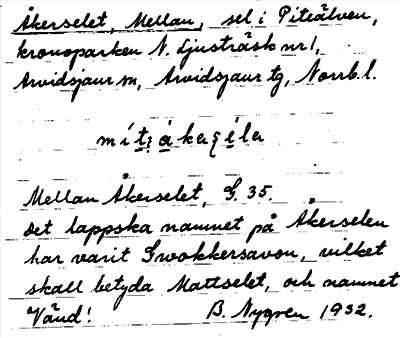 Åkerselet, Mellan, sel i Piteälven,
kronoparken N. Ljusträsk nr 1,
Arvidsjaur sn, Arvidsjaur tg, Norrb. l.
Mellan Åkerselet, G. 35.
Det lappska namnet på Åkerselen
har varit Gwokkersavon, vilket
skall betyda Mattselet, och namnet
Vänd! B. Nygren 1932.